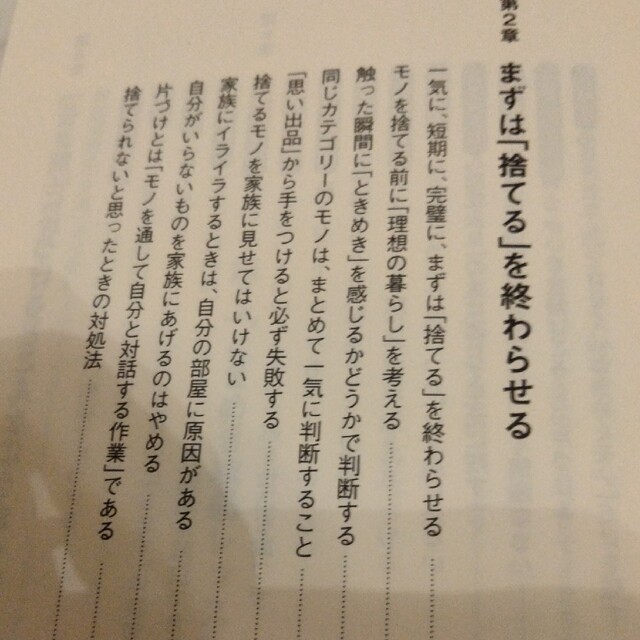 第2章 まずは「捨てる」を終わらせる
一気に、短期に、完璧に、まずは「捨てる」を終わらせる
モノを捨てる前に「理想の暮らし」を考える
触った瞬間に「ときめき」を感じるかどうかで判断する
同じカテゴリーのモノは、まとめて一気に判断すること
「思い出品」から手をつけると必ず失敗する
捨てるモノを家族に見せてはいけない
家族にイライラするときは、自分の部屋に原因がある
自分がいらないものを家族にあげるのはやめる
片づけとは「モノを通して自分と対話する作業」である
捨てられないと思ったときの対処法